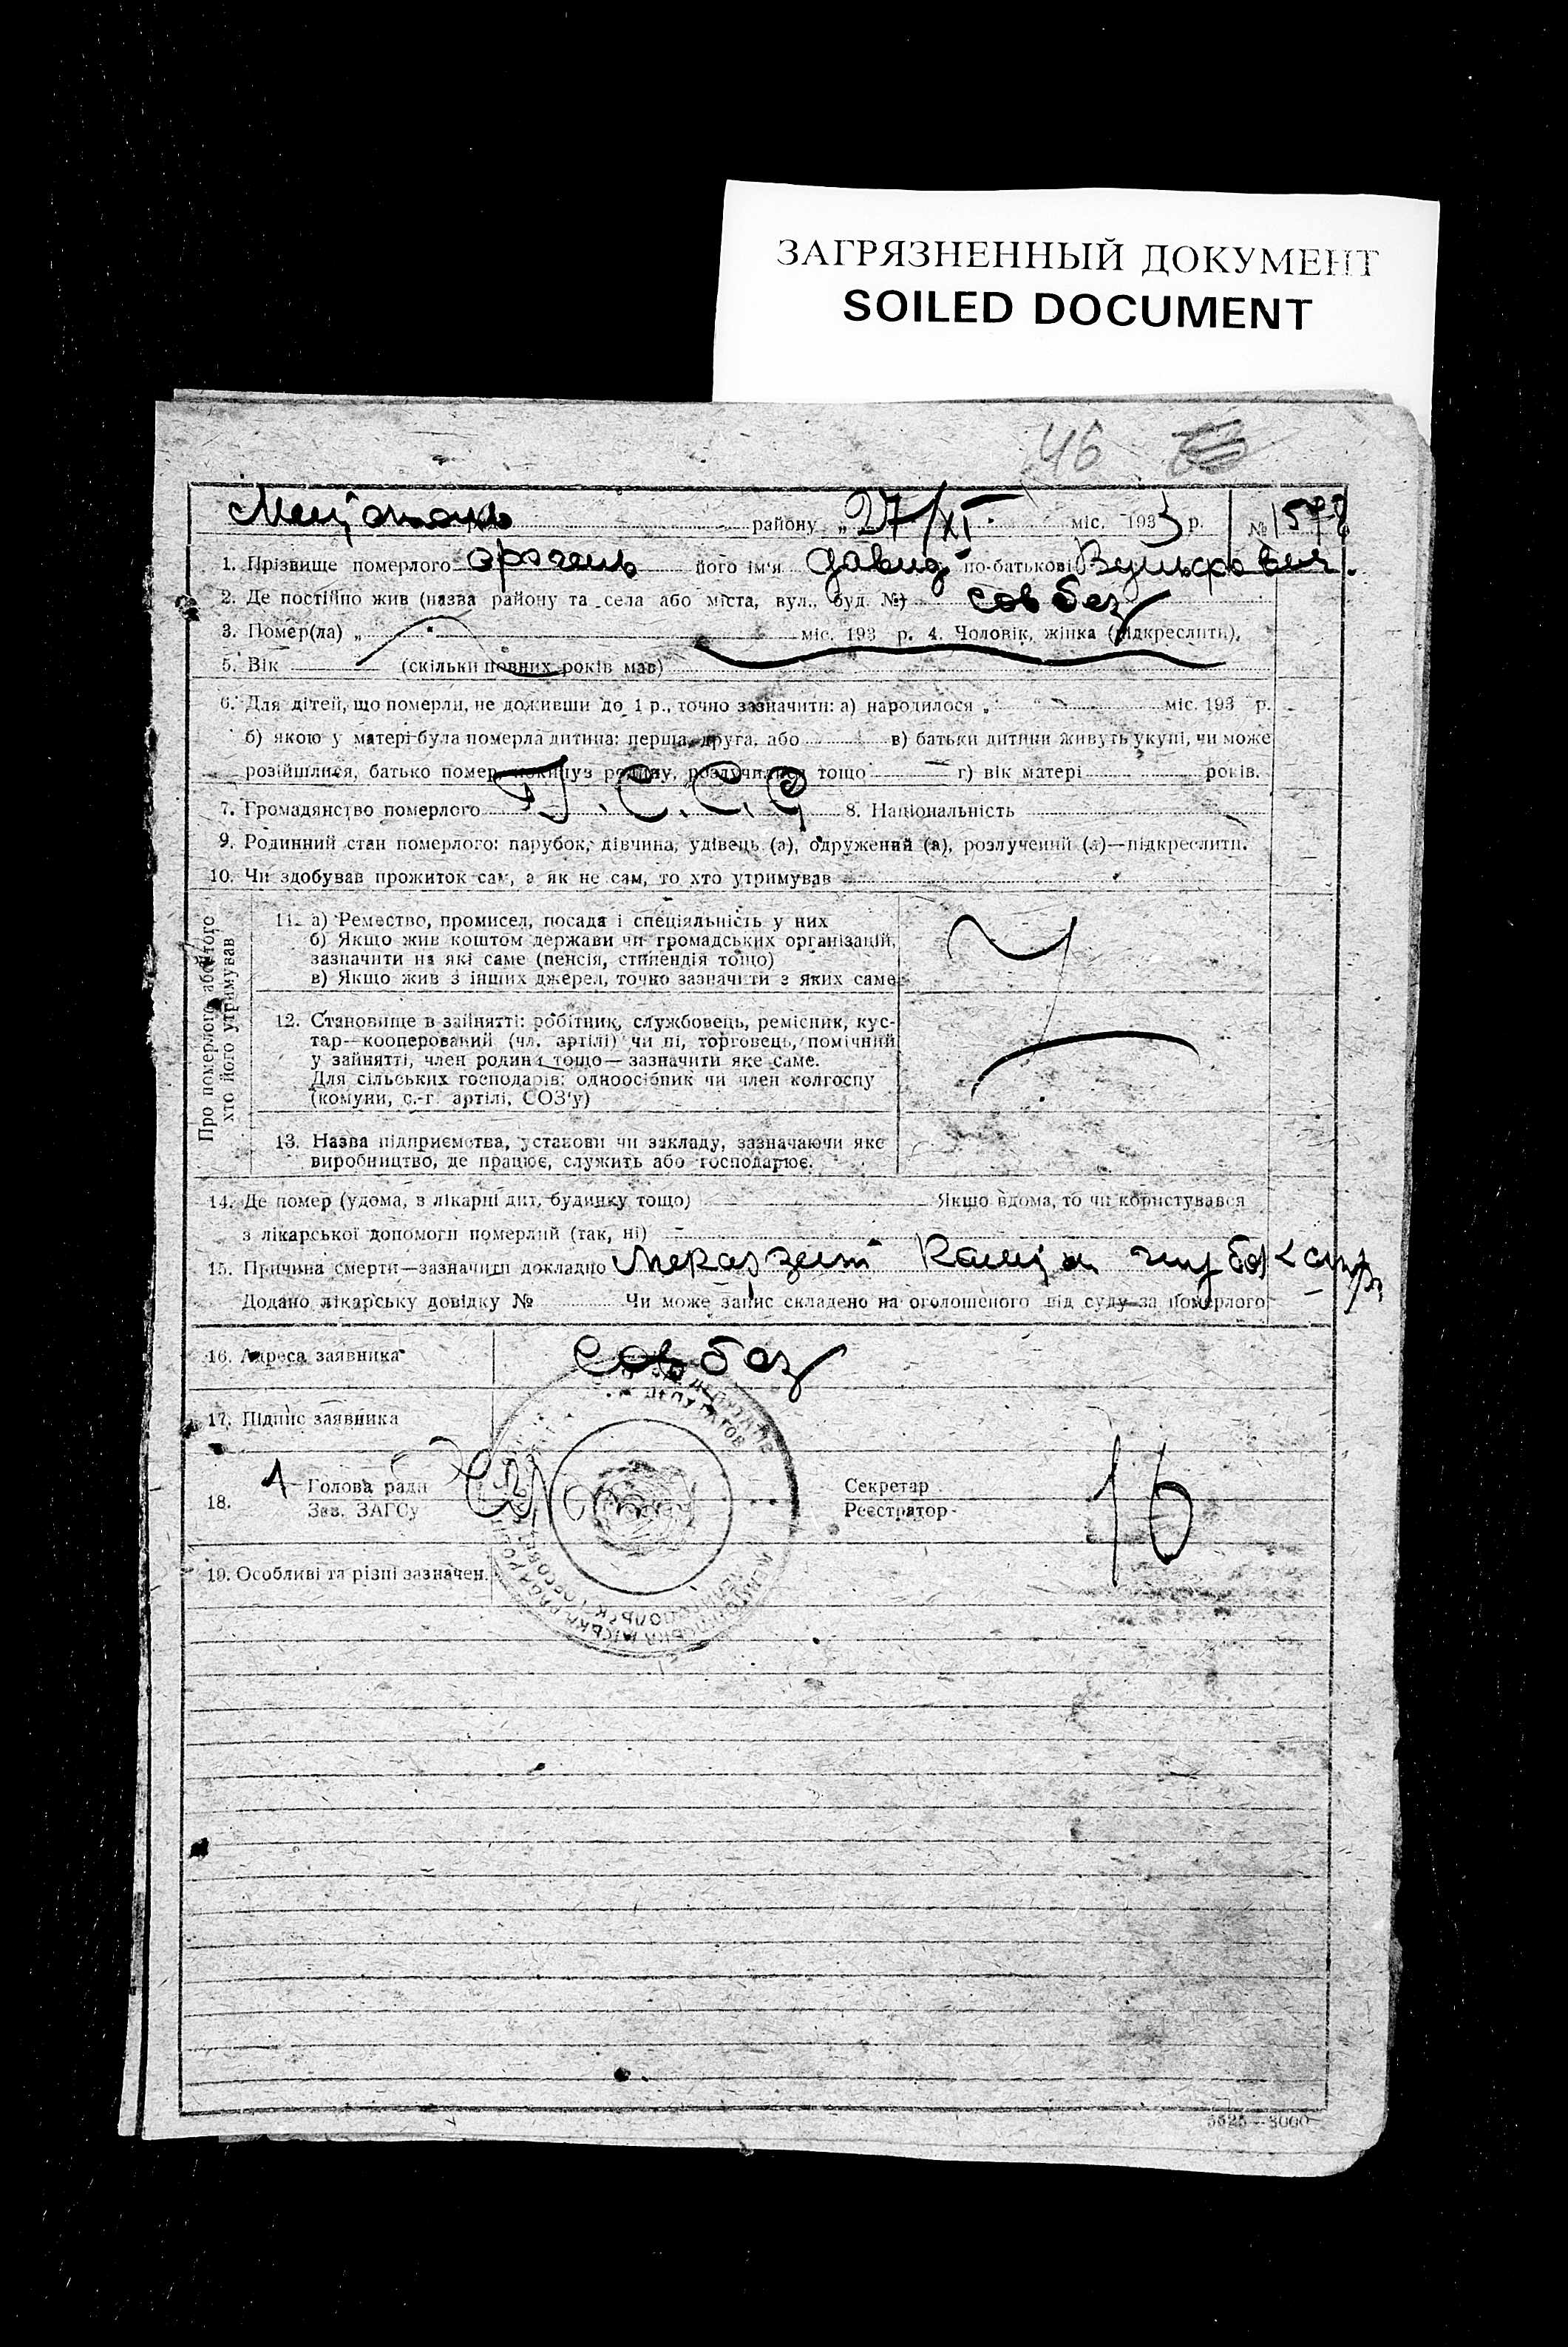 ЗАГРЯЗНЕННЫЙ ДОКУМЕНТ
SOILED DOCUMENT
46
району „27/XI міс. 1933 р. № 1578
1. Прізвище померлого його ім'я Давид по-батькові Вульфович.
2. Де постійно жив (назва району та села або міста, вул., буд. №) собез
3. Помер(ла) „ “ міс. 193 р. 4. Чоловік, жінка (підкреслити),
5. Вік (скільки повних років мав)
6. Для дітей, що померли, не доживши до 1 р., точно зазначити: а) народилося „ “ міс. 193 р.
б) якою у матері була померла дитина: перша, друга, або в) батьки дитини живуть укупі, чи може
розійшлися, батько помер, покинув родину, розлучилися тощо г) вік матері років.
7. Громадянство померлого 8. Національність
9. Родинний стан померлого: парубок, дівчина, удівець (а), одружений (а), розлучений (а)—підкреслити.
10. Чи здобував прожиток сам, а як не сам, то хто утримував
Про померлого або того
хто його утримував
11. а) Ремество, промисел, посада і спеціяльність у них
б) Якщо жив коштом держави чи громадських організацій,
зазначити на які саме (пенсія, стипендія тощо)
в) Якщо жив з інших джерел, точно зазначити з яких саме
12. Становище в зайнятті: робітник, службовець, ремісник, кус-
тар—кооперований (чл. артілі) чи ні, торговець, помічний
у зайнятті, член родини тощо—зазначити яке саме.
Для сільських господарів: одноосібник чи член колгоспу
(комуни, с.-г. артілі, СОЗ'у)
13. Назва підприємства, установи чи закладу, зазначаючи яке
виробництво, де працює, служить або господарює.
14. Де помер (удома, в лікарні дит. будинку тощо) Якщо вдома, то чи користувався
з лікарської допомоги померлий (так, ні)
15. Причина смерти—зазначити докладно
Додано лікарську довідку № Чи може запис складено на оголошеного від суду за померлого
16. Адреса заявника собез
17. Підпис заявника
18. Голова ради Секретар
Зав. ЗАГСу Реєстратор
19. Особливі та різні зазначен.
5525—3000